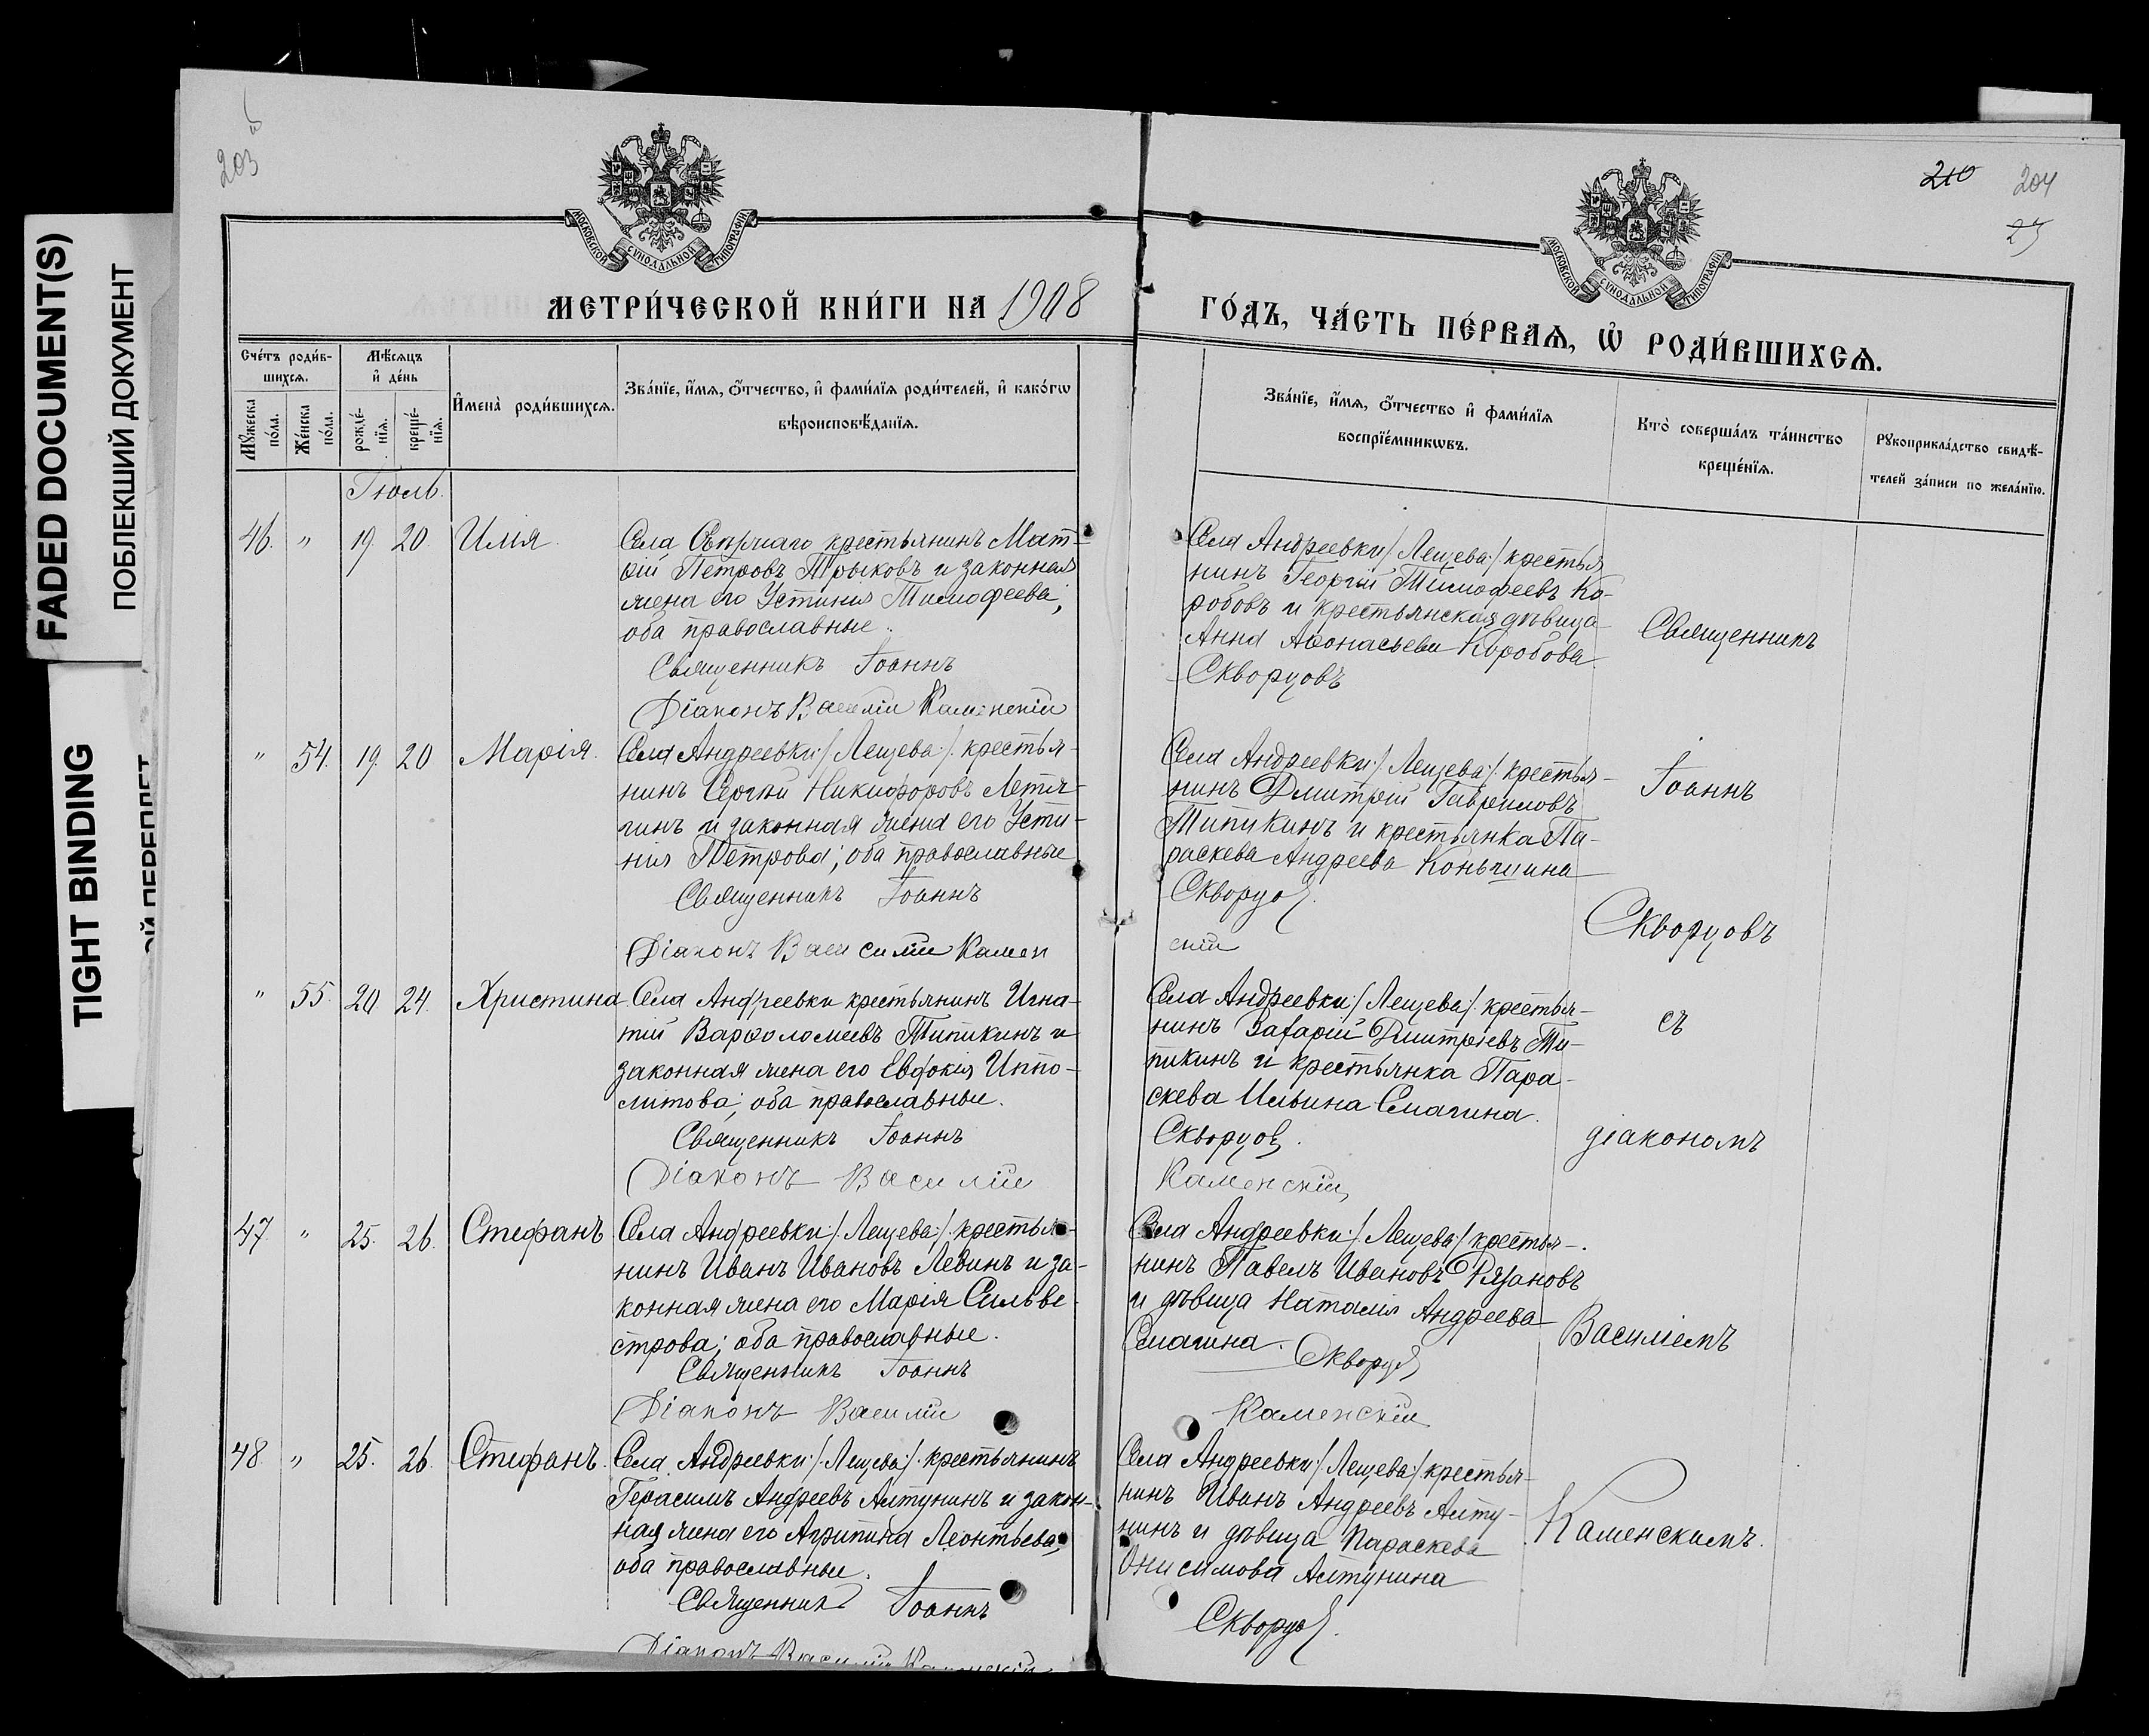 FADED DOCUMENT(S)
ПОБЛЕКШИЙ ДОКУМЕНТ
TIGHT BINDING
203
210 204
МОСКОВСКОЙ СѴНОДАЛЬНОЙ ТИПОГРАФІИ
МОСКОВСКОЙ СѴНОДАЛЬНОЙ ТИПОГРАФІИ
МЕТРИ́ЧЕСКОЙ КНИ́ГИ НА 1908
ГО́ДЪ, ЧА́СТЬ ПЕ́РВАѦ, Ѡ҆ РОДИ́ВШИХСѦ.
Сче́тъ роди́в-
шихсѧ.
Мѣ́сѧцъ
и҆ де́нь
Мꙋ́жеска
по́ла.
Же́нска
по́ла.
рожде́-
нїѧ.
креще́-
нїѧ.
И҆мена̀ роди́вшихсѧ.
Зва́нїе, и҆́мѧ, ѻ҆́тчество, и҆ фами́лїѧ роди́телей, и҆ како́гѡ
вѣроисповѣ́данїѧ.
Зва́нїе, и҆́мѧ, ѻ҆́тчество и҆ фами́лїѧ
воспрїе́мникѡвъ.
Кто̀ соверша́лъ та́инство
креще́нїѧ.
Рꙋкоприкла́дство свидѣ́-
телей за́писи по жела́нїю.
Іюль.
46. " 19. 20. Илія.
Села крестьянинъ Мат-
ѳій Петровъ Трыковъ и законная
жена его Устинія Тимофеева;
оба православные.
Священникъ Іоаннъ
Діаконъ Василій Каменскій
Села Андреевки /Лещева:/ крестья-
нинъ Георгій Тимофеевъ Ко-
робовъ и крестьянская дѣвица
Анна Аѳонасьева Коробова
Скворцовъ
Священникъ
" 54. 19. 20 Марія.
Села Андреевки:/Лещева:/. крестья-
нинъ Сергѣй Никифоровъ Летя-
гинъ и законная жена его Усти-
нія Петрова; оба православные
Священникъ Іоаннъ
Діаконъ Василій Камен
Села Андреевки:/. Лещева:/. крестья-
нинъ Дмитрій Гавриловъ
Типикинъ и крестьянка Па-
раскева Андреева Коньшина
Скворцов
скій
Іоаннъ
Скворцовъ
" 55. 20 24. Христина.
Села Андреевки крестьянинъ Игна-
тій Варѳоломеевъ Типикинъ и
законная жена его Евдокія Иппо-
литова; оба православные.
Священникъ Іоаннъ
Діаконъ Василій
Села Андреевки:/Лещева:/. крестья-
нинъ Захарій Дмитріевъ Ти-
пикинъ и крестьянка Пара-
скева Ильина Смагина.
Скворцовъ.
Каменскій
съ
діакономъ
47. " 25. 26. Стефанъ
Села Андреевки:/. Лещева:/. крестья-
нинъ Иванъ Ивановъ Левинъ и за-
конная жена его Марія Сильве-
строва; оба православные.
Священникъ Іоаннъ
Діаконъ Василій
Села Андреевки:/. Лещева:/ крестья-
нинъ Павелъ Ивановъ Рязановъ
и дѣвица Наталія Андреева
Смагина. Скворцов
Каменскій
Василіемъ
48. " 25. 26. Стефанъ.
Села Андреевки:/. Лещева:/. крестьянинъ
Герасимъ Андреевъ Алтунинъ и закон-
ная жена его Агрипина Леонтьева;
оба православные.
Священникъ Іоаннъ
Діаконъ Василій Каменскій
Села Андреевки:/Лещева:/ крестья-
нинъ Иванъ Андреевъ Алту-
нинъ и дѣвица Параскева
Онисимова Алтунина
Скворцов.
Каменскимъ.